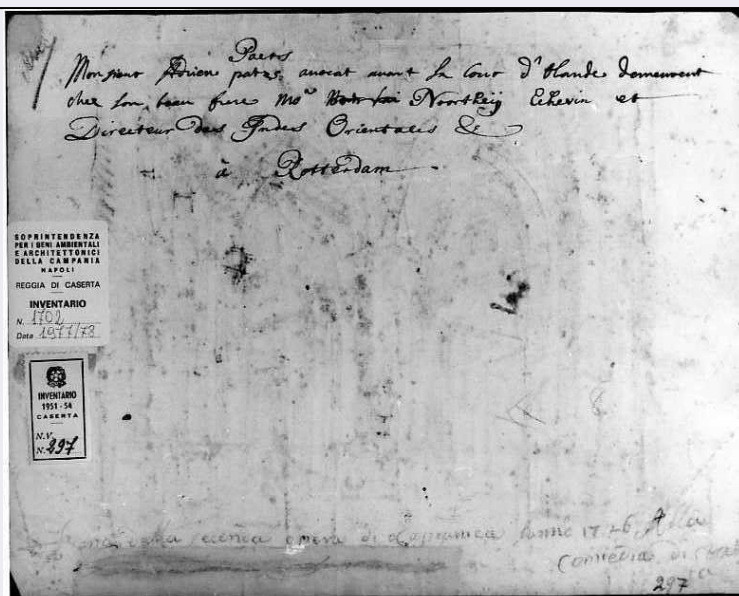 Paets
Monsieur Adrien patzs avocat avant la Cour d'olande demeurent
chez son beau frere Mo^r Noortheij Echevin et
Directeur Des Indes Orientales &
à Rotterdam
SOPRINTENDENZA
PER I BENI AMBIENTALI
E ARCHITETTONICI
DELLA CAMPANIA
NAPOLI
REGGIA DI CASERTA
INVENTARIO
N. 1702
Data 1977/78
INVENTARIO
1951-54
CASERTA
N.V.
N. 297
seconda opera di Capranica l'anno 1726 Alla
Comedia di
297